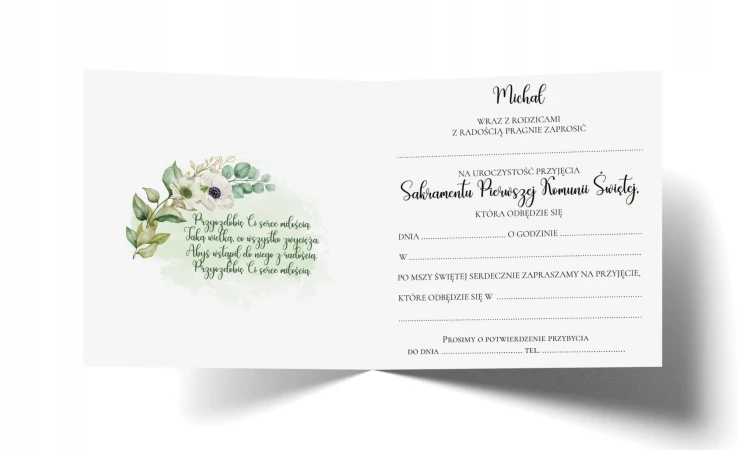 Przyozdobię Ci serce miłością.
Taką wielką, co wszystko zwycięża.
Abyś wstąpił do niego z radością.
Przyozdobię Ci serce miłością.
Michał
WRAZ Z RODZICAMI
Z RADOŚCIĄ PRAGNIE ZAPROSIĆ
......................................................................
NA UROCZYSTOŚĆ PRZYJĘCIA
Sakramentu Pierwszej Komunii Świętej,
KTÓRA ODBĘDZIE SIĘ
DNIA ........................ O GODZINIE ........................
W ......................................................................
PO MSZY ŚWIĘTEJ SERDECZNIE ZAPRASZAMY NA PRZYJĘCIE,
KTÓRE ODBĘDZIE SIĘ W ........................................
......................................................................
PROSIMY O POTWIERDZENIE PRZYBYCIA
DO DNIA ........................ TEL. ........................